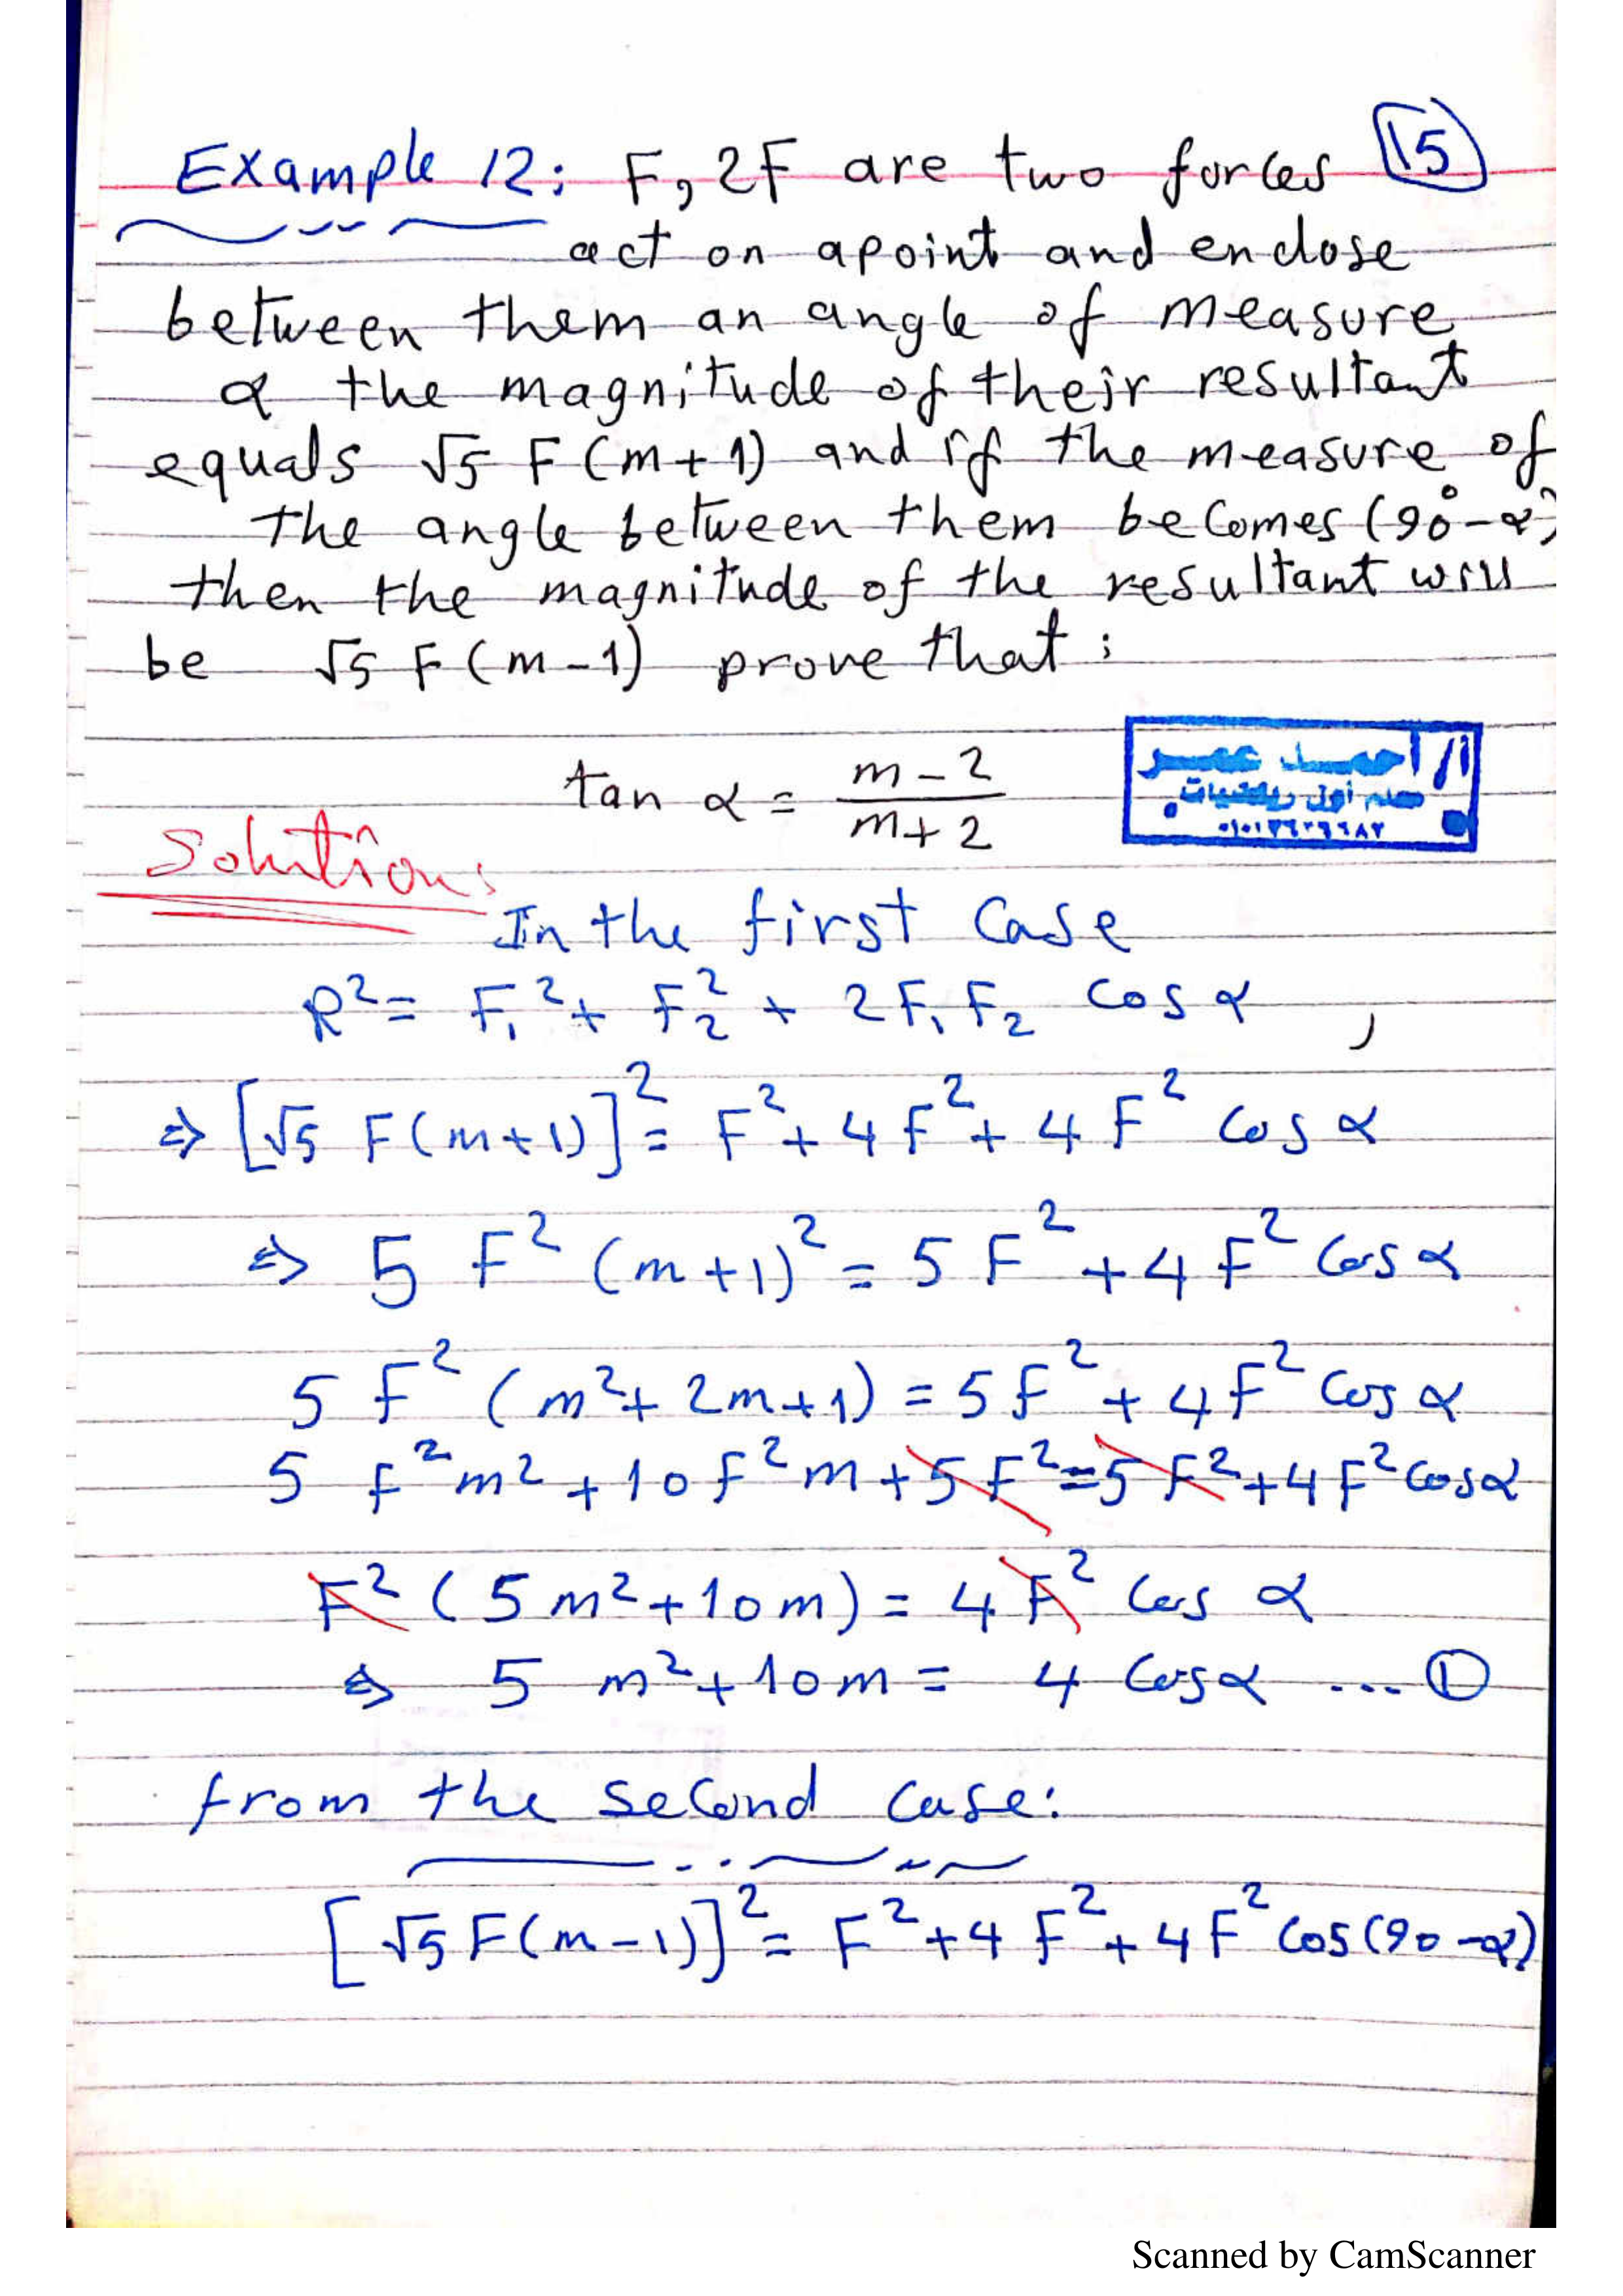 Example 12: F, 2F are two forces 15
act on apoint and enclose
between them an angle of measure
α the magnitude of their resultant
equals √5 F (m+1) and if the measure of
the angle between them becomes (90°-α)
then the magnitude of the resultant will
be √5 F (m-1) prove that:
tan α = (m-2)/(m+2)
أ/ أحمد عمر
معلم أول رياضيات
Solution:
In the first Case
R² = F₁² + F₂² + 2F₁F₂ cos α ,
⇒ [√5 F(m+1)]² = F² + 4F² + 4F² cos α
⇒ 5 F² (m+1)² = 5F² + 4F² cos α
5 F² (m² + 2m + 1) = 5F² + 4F² cos α
5 F²m² + 10F²m + 5F² = 5F² + 4F² cos α
F² (5m² + 10m) = 4F² cos α
⇒ 5 m² + 10m = 4 cos α ... ①
from the second case:
[√5 F(m-1)]² = F² + 4F² + 4F² cos(90-α)
Scanned by CamScanner